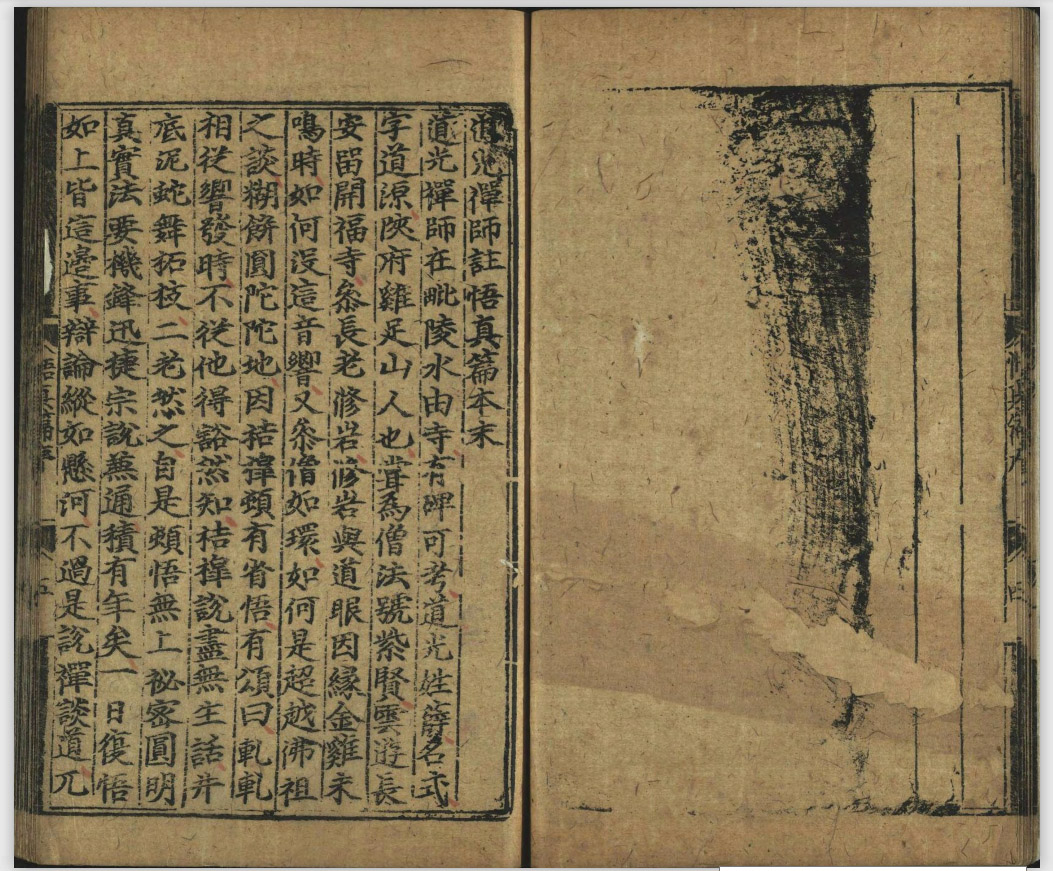 道光禪師註悟真篇本末
道光禪師在毗陵水由寺有碑可考道光姓薛名式
字道源陝府雞足山人也甞為僧法號紫賢雲遊長
安留開福寺叅長老修岩修岩與道眼因緣金雞未
鳴時如何沒這音響又叅僧如環如何是超越佛祖
之談糊餅圓陀陀地因桔槔頓有省悟有頌曰軋軋
相從響發時不從他得豁然知桔槔說盡無生話井
底泥蛇舞拓枝二老然之自是頓悟無上祕密圓明
真實法要機鋒迅捷宗說兼通積有年矣一日復悟
如上皆這邊事辯論縱如懸河不過是說禪談道兀
悟真篇序
五